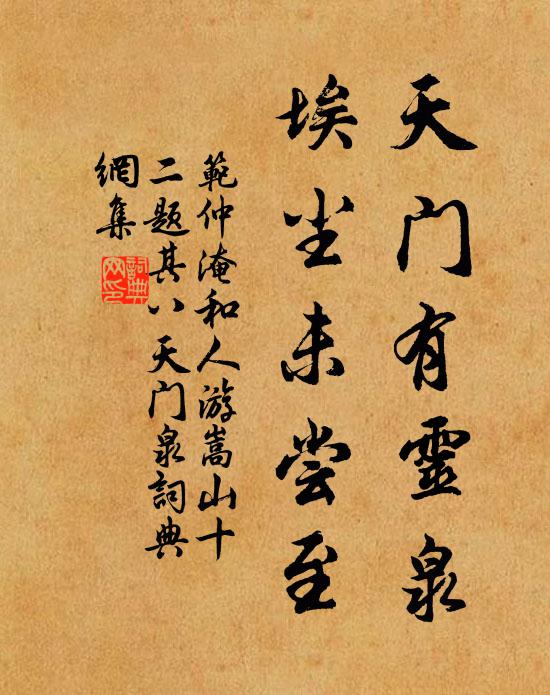 天门有靈泉
埃尘未尝至
範仲淹和人游嵩山十
二题其八天门泉詞典
網集
詞典
网印